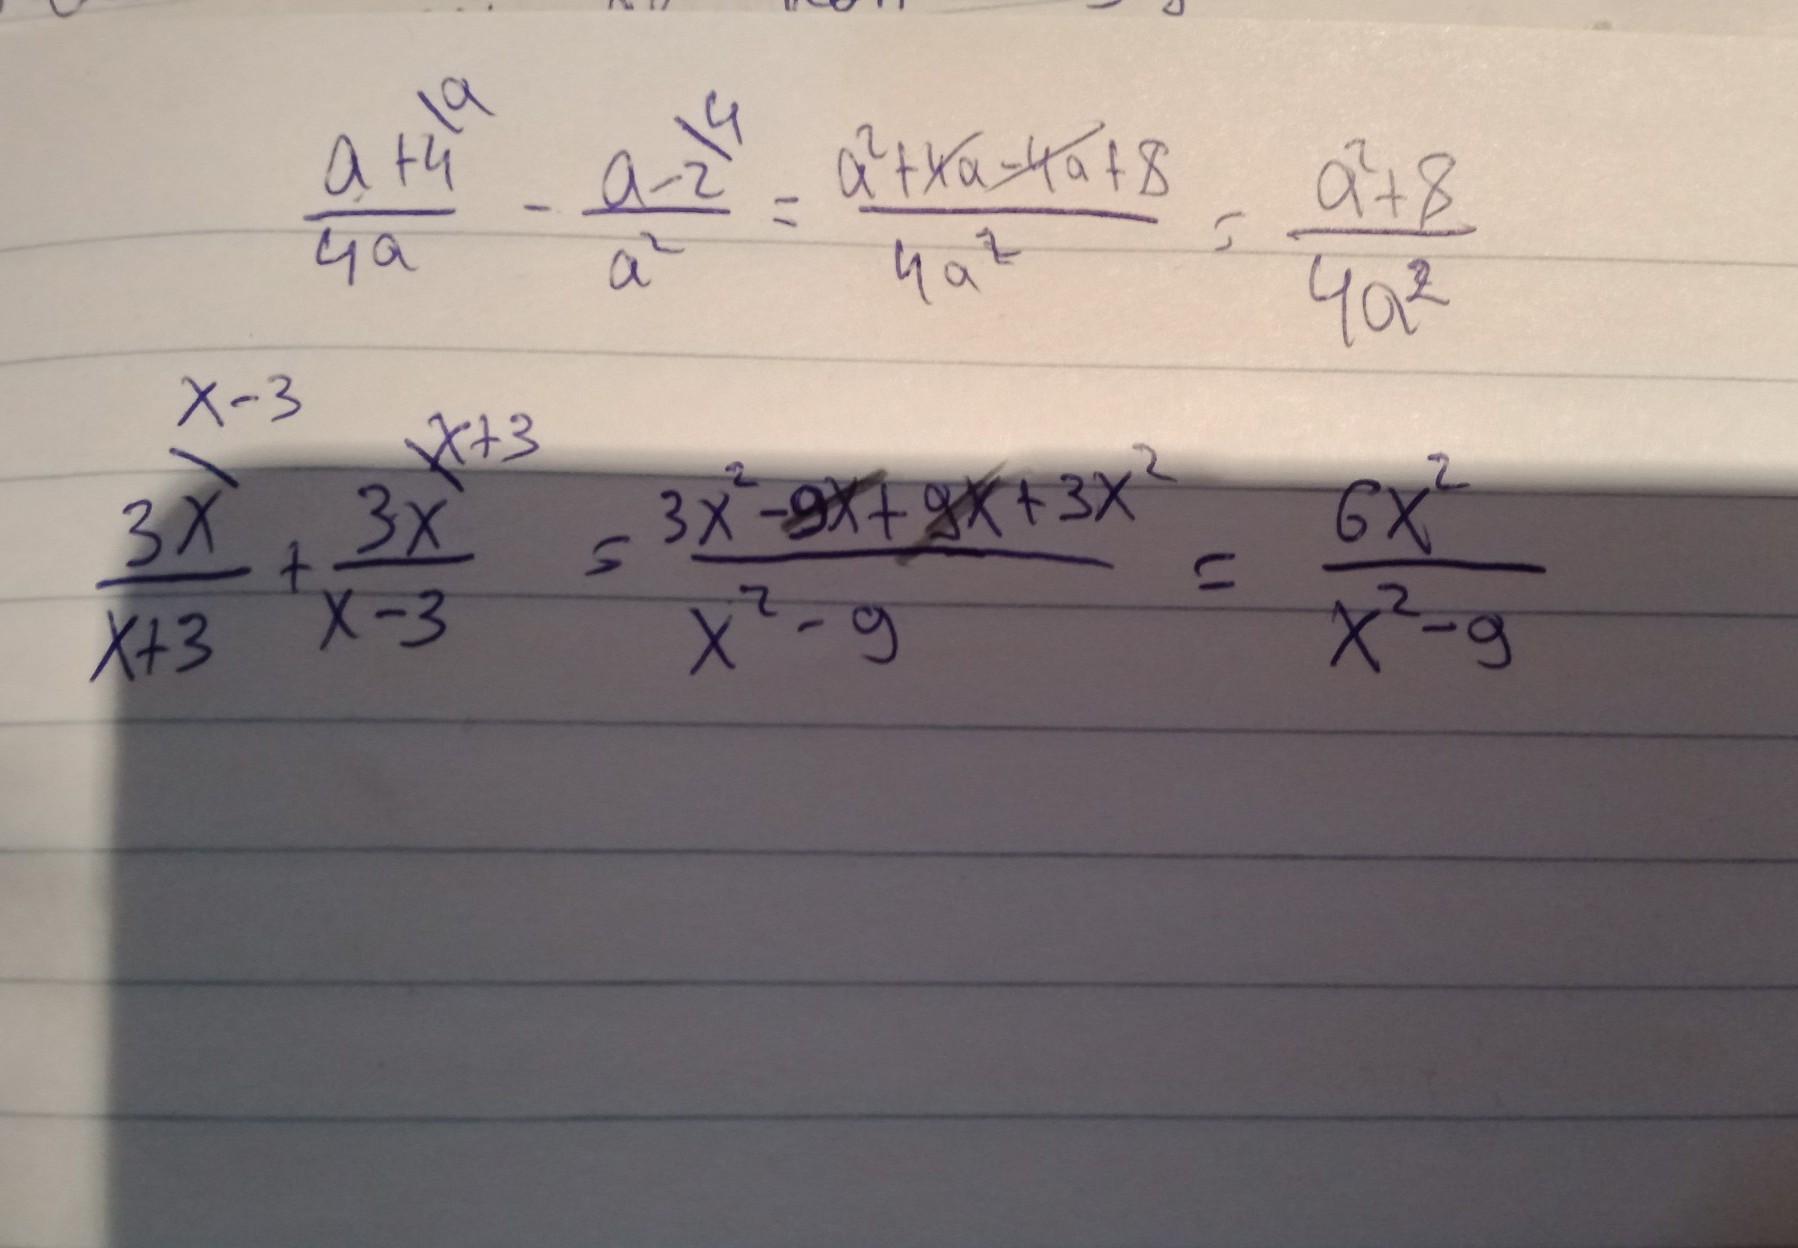 \frac{a+4^{\backslash a}}{4a} - \frac{a-2^{\backslash 4}}{a^2} = \frac{a^2+4a-4a+8}{4a^2} = \frac{a^2+8}{4a^2}
\frac{3x^{\backslash x-3}}{x+3} + \frac{3x^{\backslash x+3}}{x-3} = \frac{3x^2-9x+9x+3x^2}{x^2-9} = \frac{6x^2}{x^2-9}